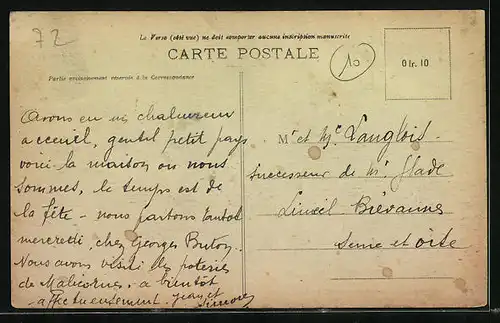 72
Le Verso (côté vue) ne doit comporter aucune inscription manuscrite
CARTE POSTALE
10
0 fr. 10
Partie exclusivement réservée à la Correspondance
Avons eu un chaleureux
acceuil, gentil petit pays
voici la maison ou nous
sommes, le temps est de
la fête - nous partons
mercredi, chez Georges
Nous avons visiti les poteries
de Malicorne, a bientôt
affectueusement. Jean et
Mr et Me Langlois -
successeur de Mr
Limeil Brévannes
Seine et Oise